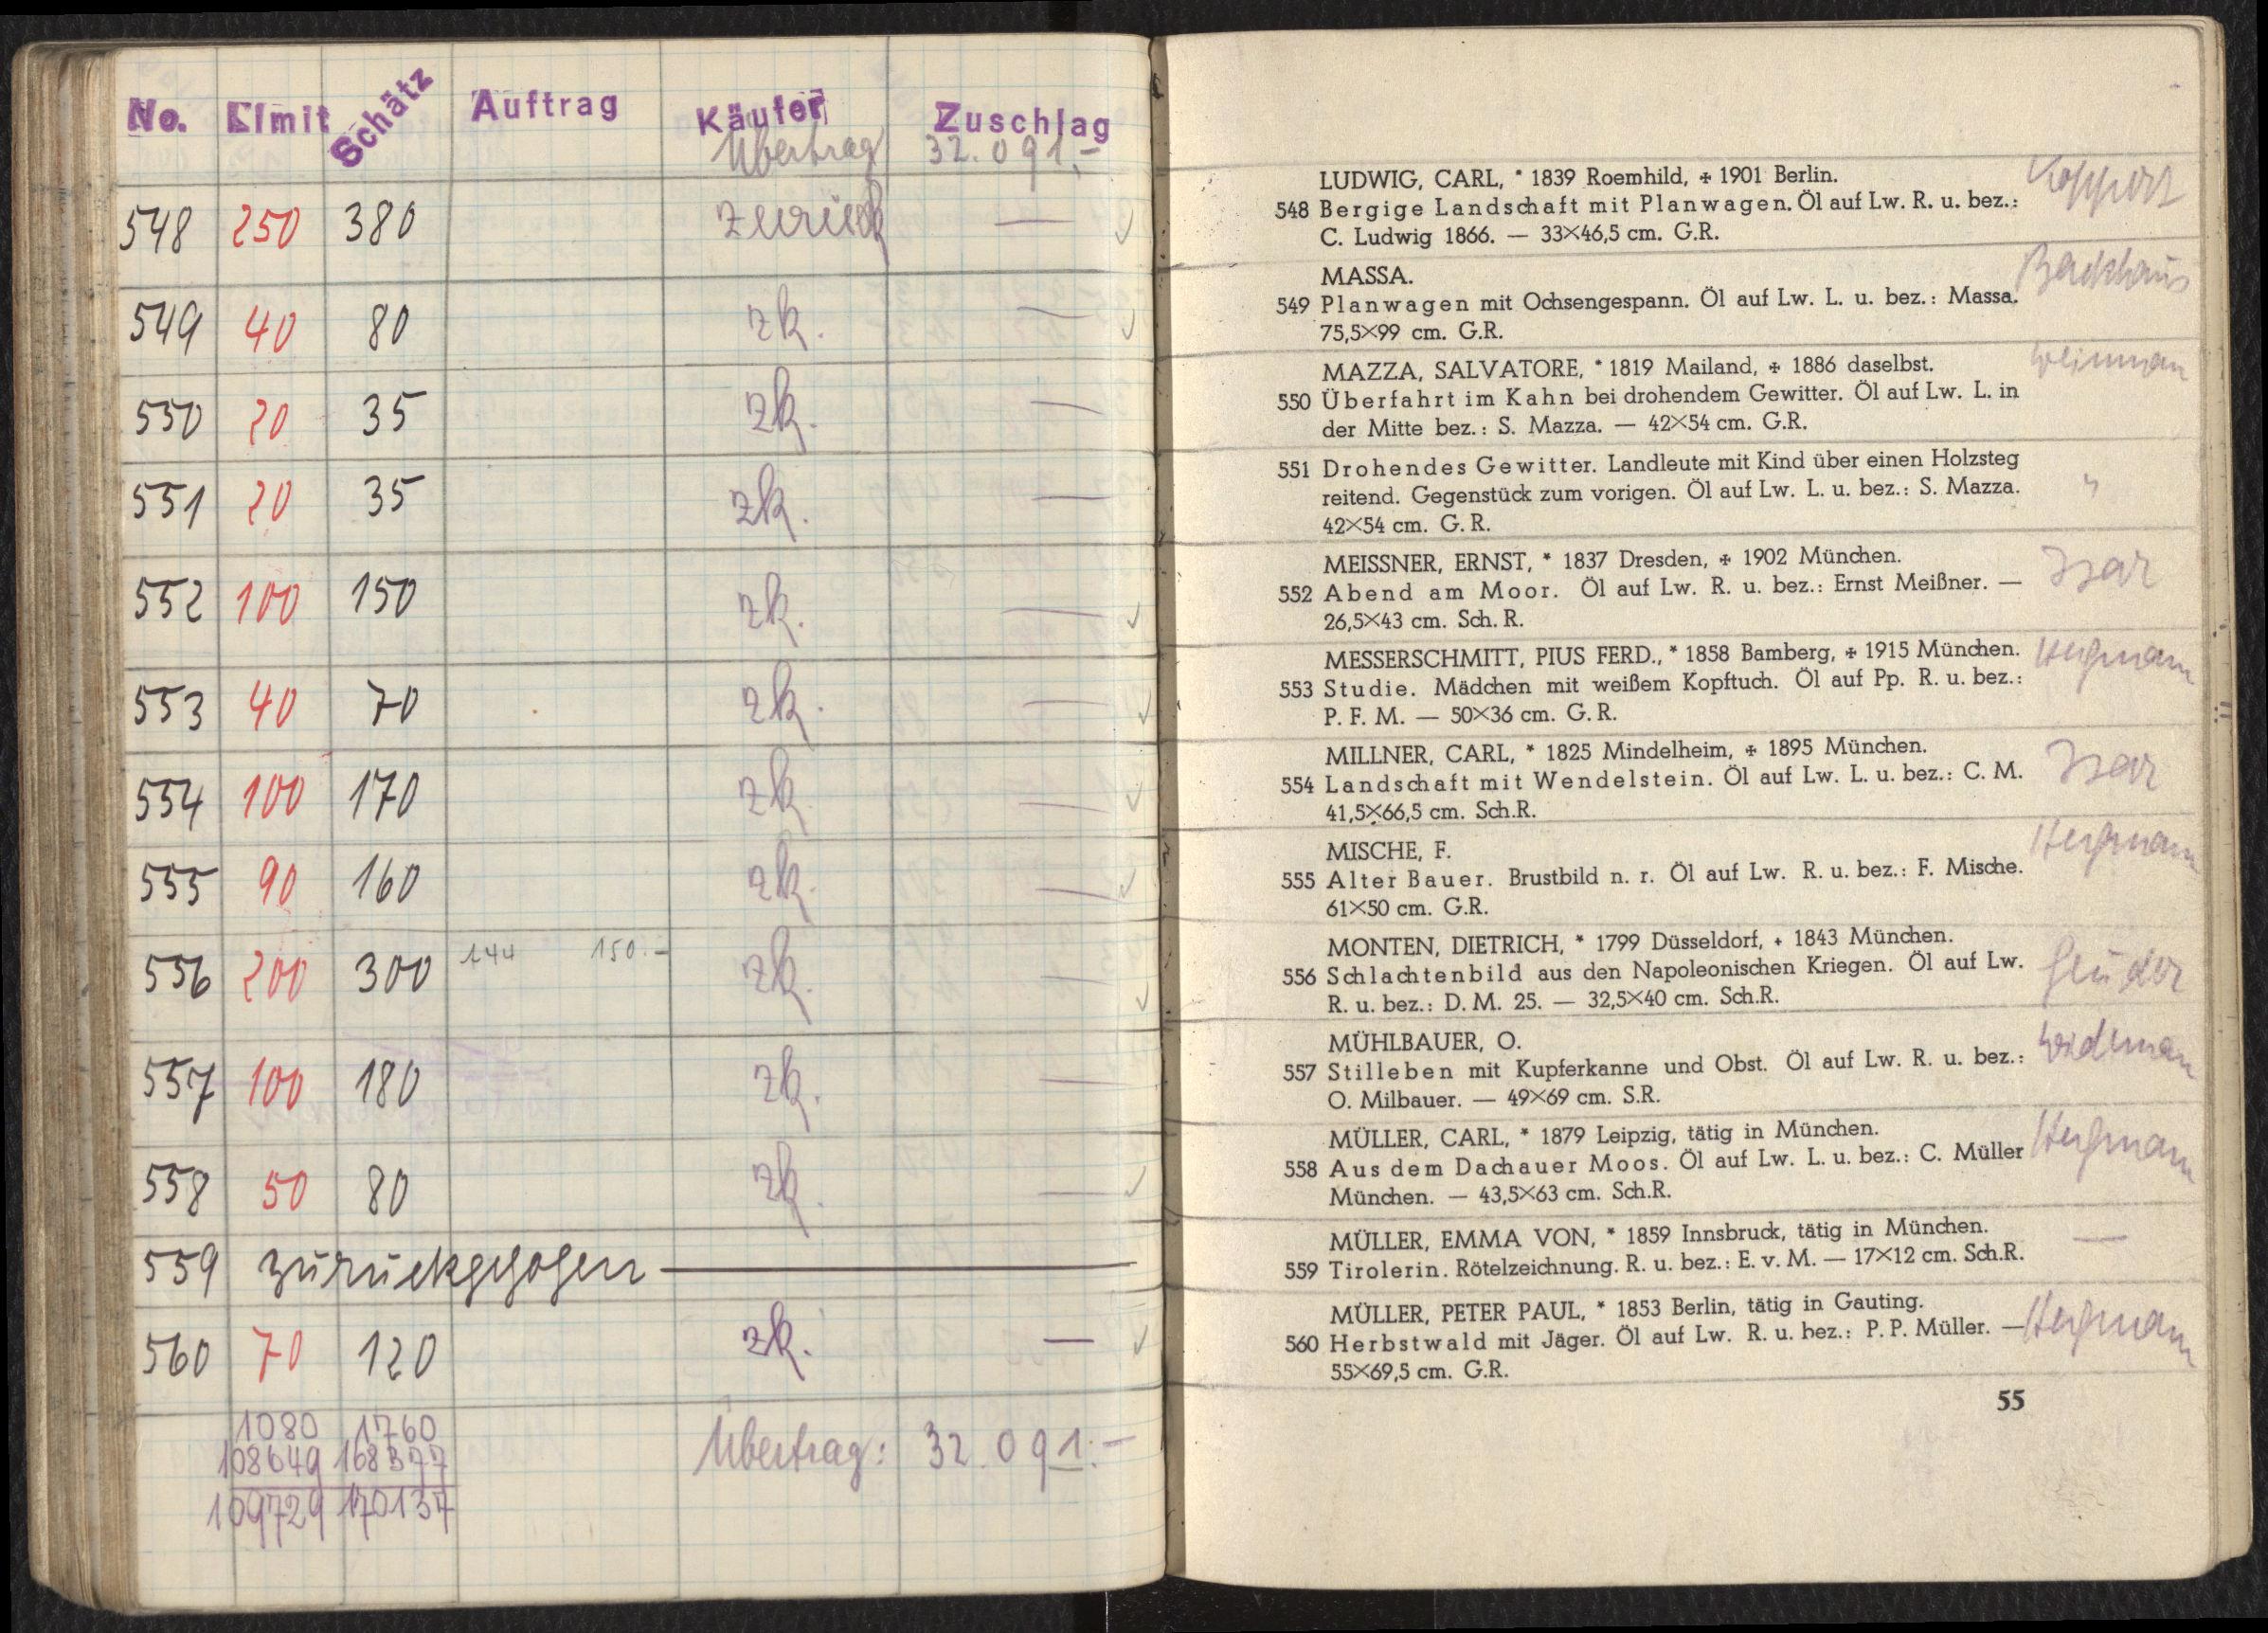 No. Limit Schätz Auftrag Käufer Zuschlag
Übertrag 32.091.-
548 250 380 zurück —
549 40 80 zk. —
550 20 35 zk. —
551 20 35 zk. —
552 100 150 zk. —
553 40 70 zk. —
554 100 170 zk. —
555 90 160 zk. —
556 200 300 144 150.- zk.
557 100 180 zk. —
558 50 80 zk. —
559 zurückgezogen —
560 70 120 zk. —
1080 1760
108649 168377
109729 170137
Übertrag: 32.091.-
LUDWIG, CARL, * 1839 Roemhild, ✠ 1901 Berlin.
548 Bergige Landschaft mit Planwagen. Öl auf Lw. R. u. bez.:
C. Ludwig 1866. — 33×46,5 cm. G.R.
MASSA. Backhaus
549 Planwagen mit Ochsengespann. Öl auf Lw. L. u. bez.: Massa.
75,5×99 cm. G.R.
MAZZA, SALVATORE, * 1819 Mailand, ✠ 1886 daselbst. Weinman
550 Überfahrt im Kahn bei drohendem Gewitter. Öl auf Lw. L. in
der Mitte bez.: S. Mazza. — 42×54 cm. G.R.
551 Drohendes Gewitter. Landleute mit Kind über einen Holzsteg
reitend. Gegenstück zum vorigen. Öl auf Lw. L. u. bez.: S. Mazza. "
42×54 cm. G. R.
MEISSNER, ERNST, * 1837 Dresden, ✠ 1902 München.
552 Abend am Moor. Öl auf Lw. R. u. bez.: Ernst Meißner. — Isar
26,5×43 cm. Sch. R.
MESSERSCHMITT, PIUS FERD., * 1858 Bamberg, ✠ 1915 München.
553 Studie. Mädchen mit weißem Kopftuch. Öl auf Pp. R. u. bez.:
P. F. M. — 50×36 cm. G. R.
MILLNER, CARL, * 1825 Mindelheim, ✠ 1895 München.
554 Landschaft mit Wendelstein. Öl auf Lw. L. u. bez.: C. M. Isar
41,5×66,5 cm. Sch.R.
MISCHE, F.
555 Alter Bauer. Brustbild n. r. Öl auf Lw. R. u. bez.: F. Mische.
61×50 cm. G.R.
MONTEN, DIETRICH, * 1799 Düsseldorf, + 1843 München.
556 Schlachtenbild aus den Napoleonischen Kriegen. Öl auf Lw.
R. u. bez.: D. M. 25. — 32,5×40 cm. Sch.R.
MÜHLBAUER, O. Widman
557 Stilleben mit Kupferkanne und Obst. Öl auf Lw. R. u. bez.:
O. Milbauer. — 49×69 cm. S.R.
MÜLLER, CARL, * 1879 Leipzig, tätig in München.
558 Aus dem Dachauer Moos. Öl auf Lw. L. u. bez.: C. Müller
München. — 43,5×63 cm. Sch.R.
MÜLLER, EMMA VON, * 1859 Innsbruck, tätig in München. —
559 Tirolerin. Rötelzeichnung. R. u. bez.: E. v. M. — 17×12 cm. Sch.R.
MÜLLER, PETER PAUL, * 1853 Berlin, tätig in Gauting.
560 Herbstwald mit Jäger. Öl auf Lw. R. u. bez.: P. P. Müller. —
55×69,5 cm. G.R.
55